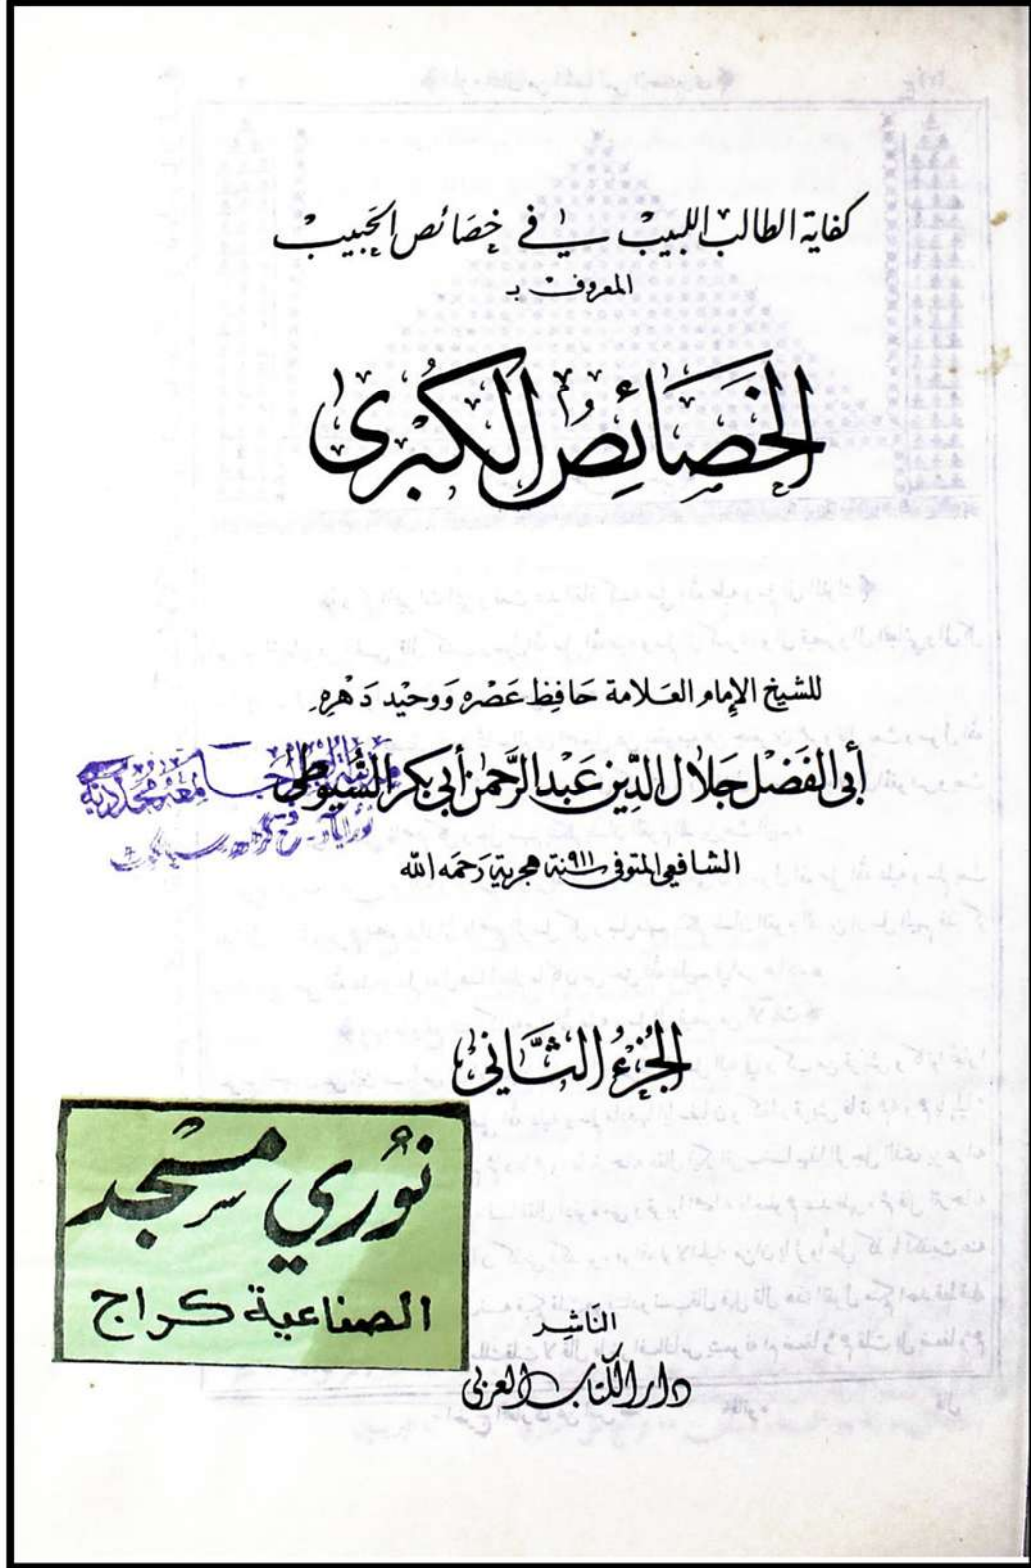 كفاية الطالب اللبيب في خصائص الحبيب
المعروف بـ
الخَصَائِصُ الكُبرى
للشيخ الإمام العلامة حَافِظ عَصْره وَوحيد دَهْرِه
أبي الفَضْل جَلال الدِّين عَبْد الرَّحمٰن أبي بكر السُّيُوطي
الشافعي المتوفى سنة ٩١١ هجرية رَحمَه الله
الجُزءُ الثَّاني
نوُري مسْجد
الصناعية كراج
النَّاشِر
دار الكتاب العربي